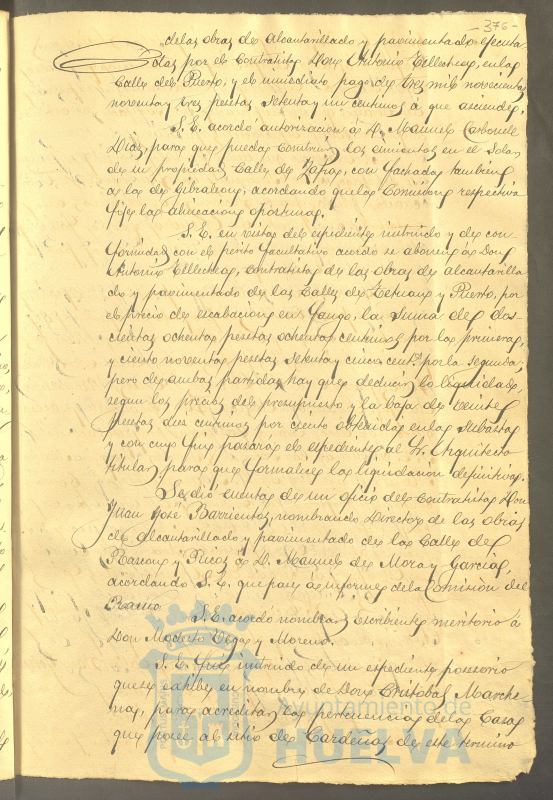 376-
de las obras de alcantarillado y pavimentado ejecuta-
das por el Contratista Don Antonio Tellechea, en las
Calles del Puerto, y el inmediato pago de tres mil novecientas
noventa y tres pesetas setenta y un centimos á que asciende.
S. E. acordó autorizacion á D. Manuel Carbonell
Diaz, para que pueda construir los cimientos en el solar
de su propiedad Calle de Zafra, con fachada tambien
á la de Gibraleon, acordando que la Comision respectiva
fije las alineaciones oportunas.
S. E. en vista del espediente instruido y de con-
formidad con el perito facultativo acordó se abone á Don
Antonio Tellechea, contratista de las obras de alcantarilla
do y pavimentado de las Calles de Tetuan y Puerto, por
el precio de escabacion en fango, la suma de dos-
cientas ochenta pesetas ochenta centimos por la primera,
y ciento noventa pesetas setenta y cinco cent.s por la segunda,
pero de ambas partidas hay que deducir lo liquidado
segun los precios del presupuesto y la baja de veinte
pesetas diez centimos por ciento obtenida en la subasta
y con cuyo fin pasará el espediente al Sr. Arquitecto
titular para que formalice la liquidacion definitiva.
Se dió cuenta de un oficio del Contratista Don
Juan José Barrientos, nombrando Director de las obras
de Alcantarillado y pavimentado de la Calle del
Rascon y Ricos á D. Manuel de Mora y Garcia,
acordando S. E. que pase á informe de la Comision del
Ramo.
S. E. acordó nombrar Escribiente meritorio á
Don Modesto Vega y Moreno.
S. E. fué instruido de un espediente posesorio
que se entable en nombre de Don Cristobal Marche
na, para acreditar la pertenencia de las Casas
que posee al sitio de Cardeñas de este termino
Ayuntamiento de
HUELVA